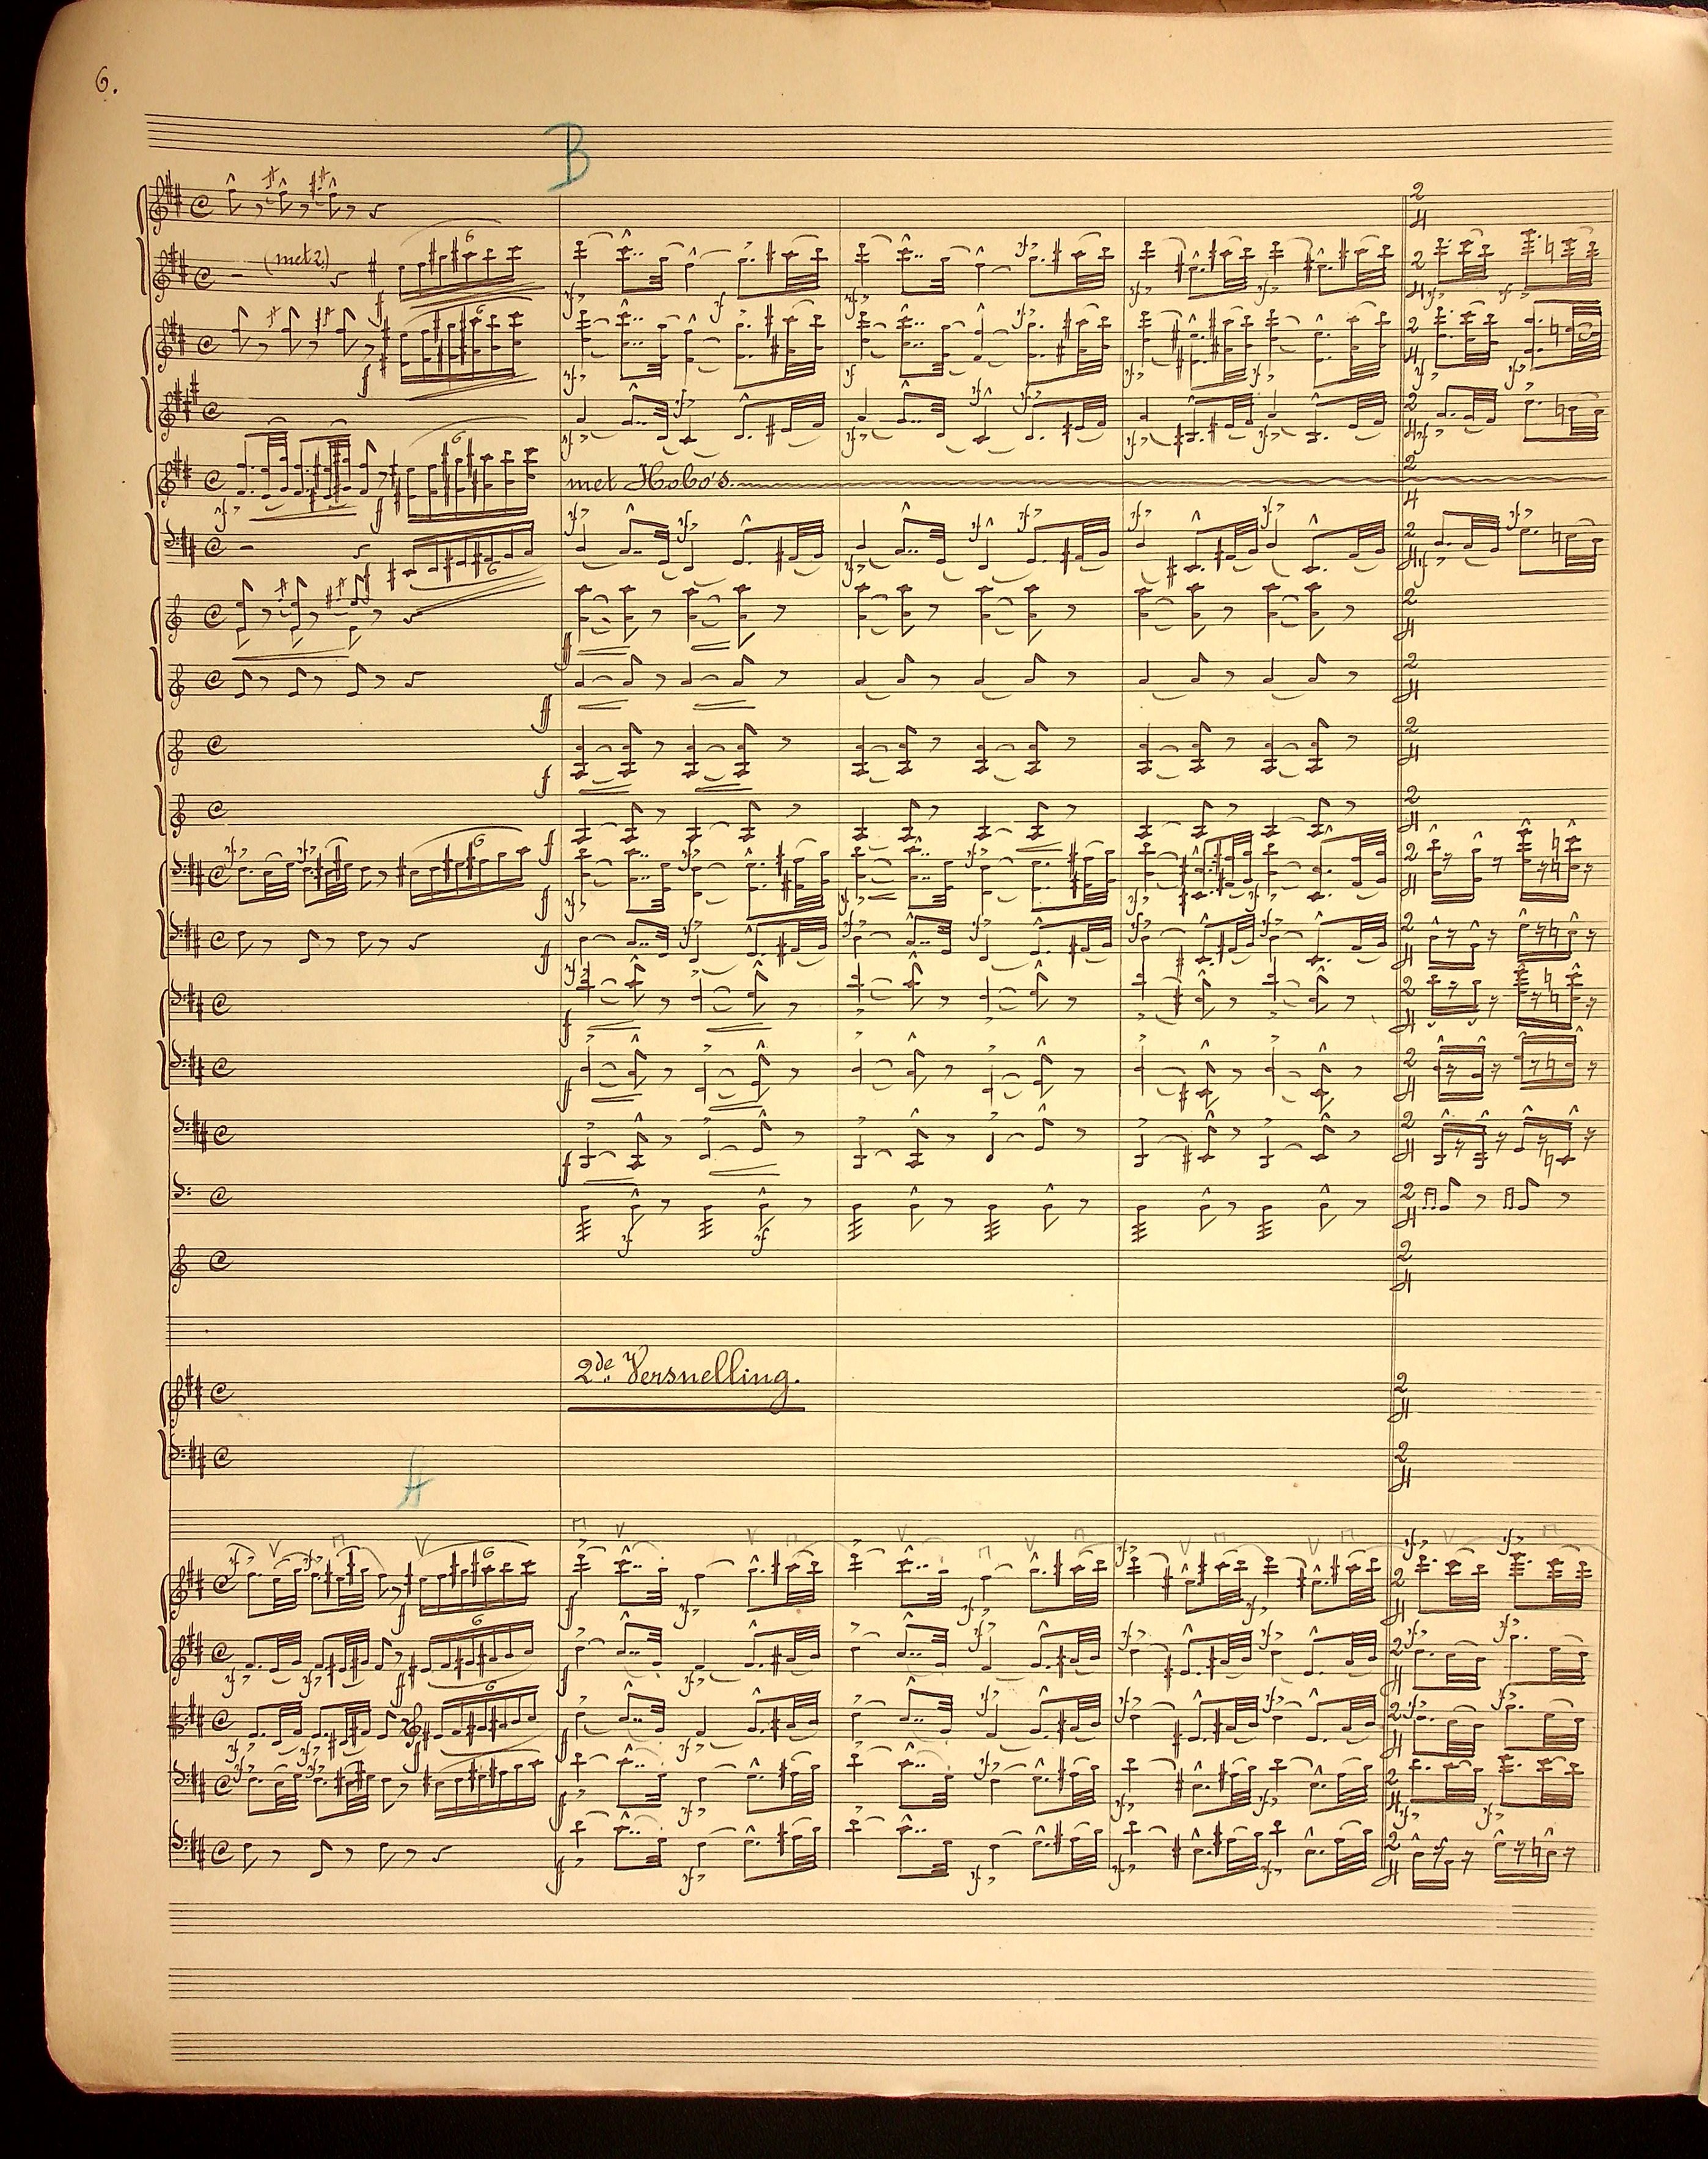 6.
B
(met 2)
met Hobo's.
2de Versnelling.
A